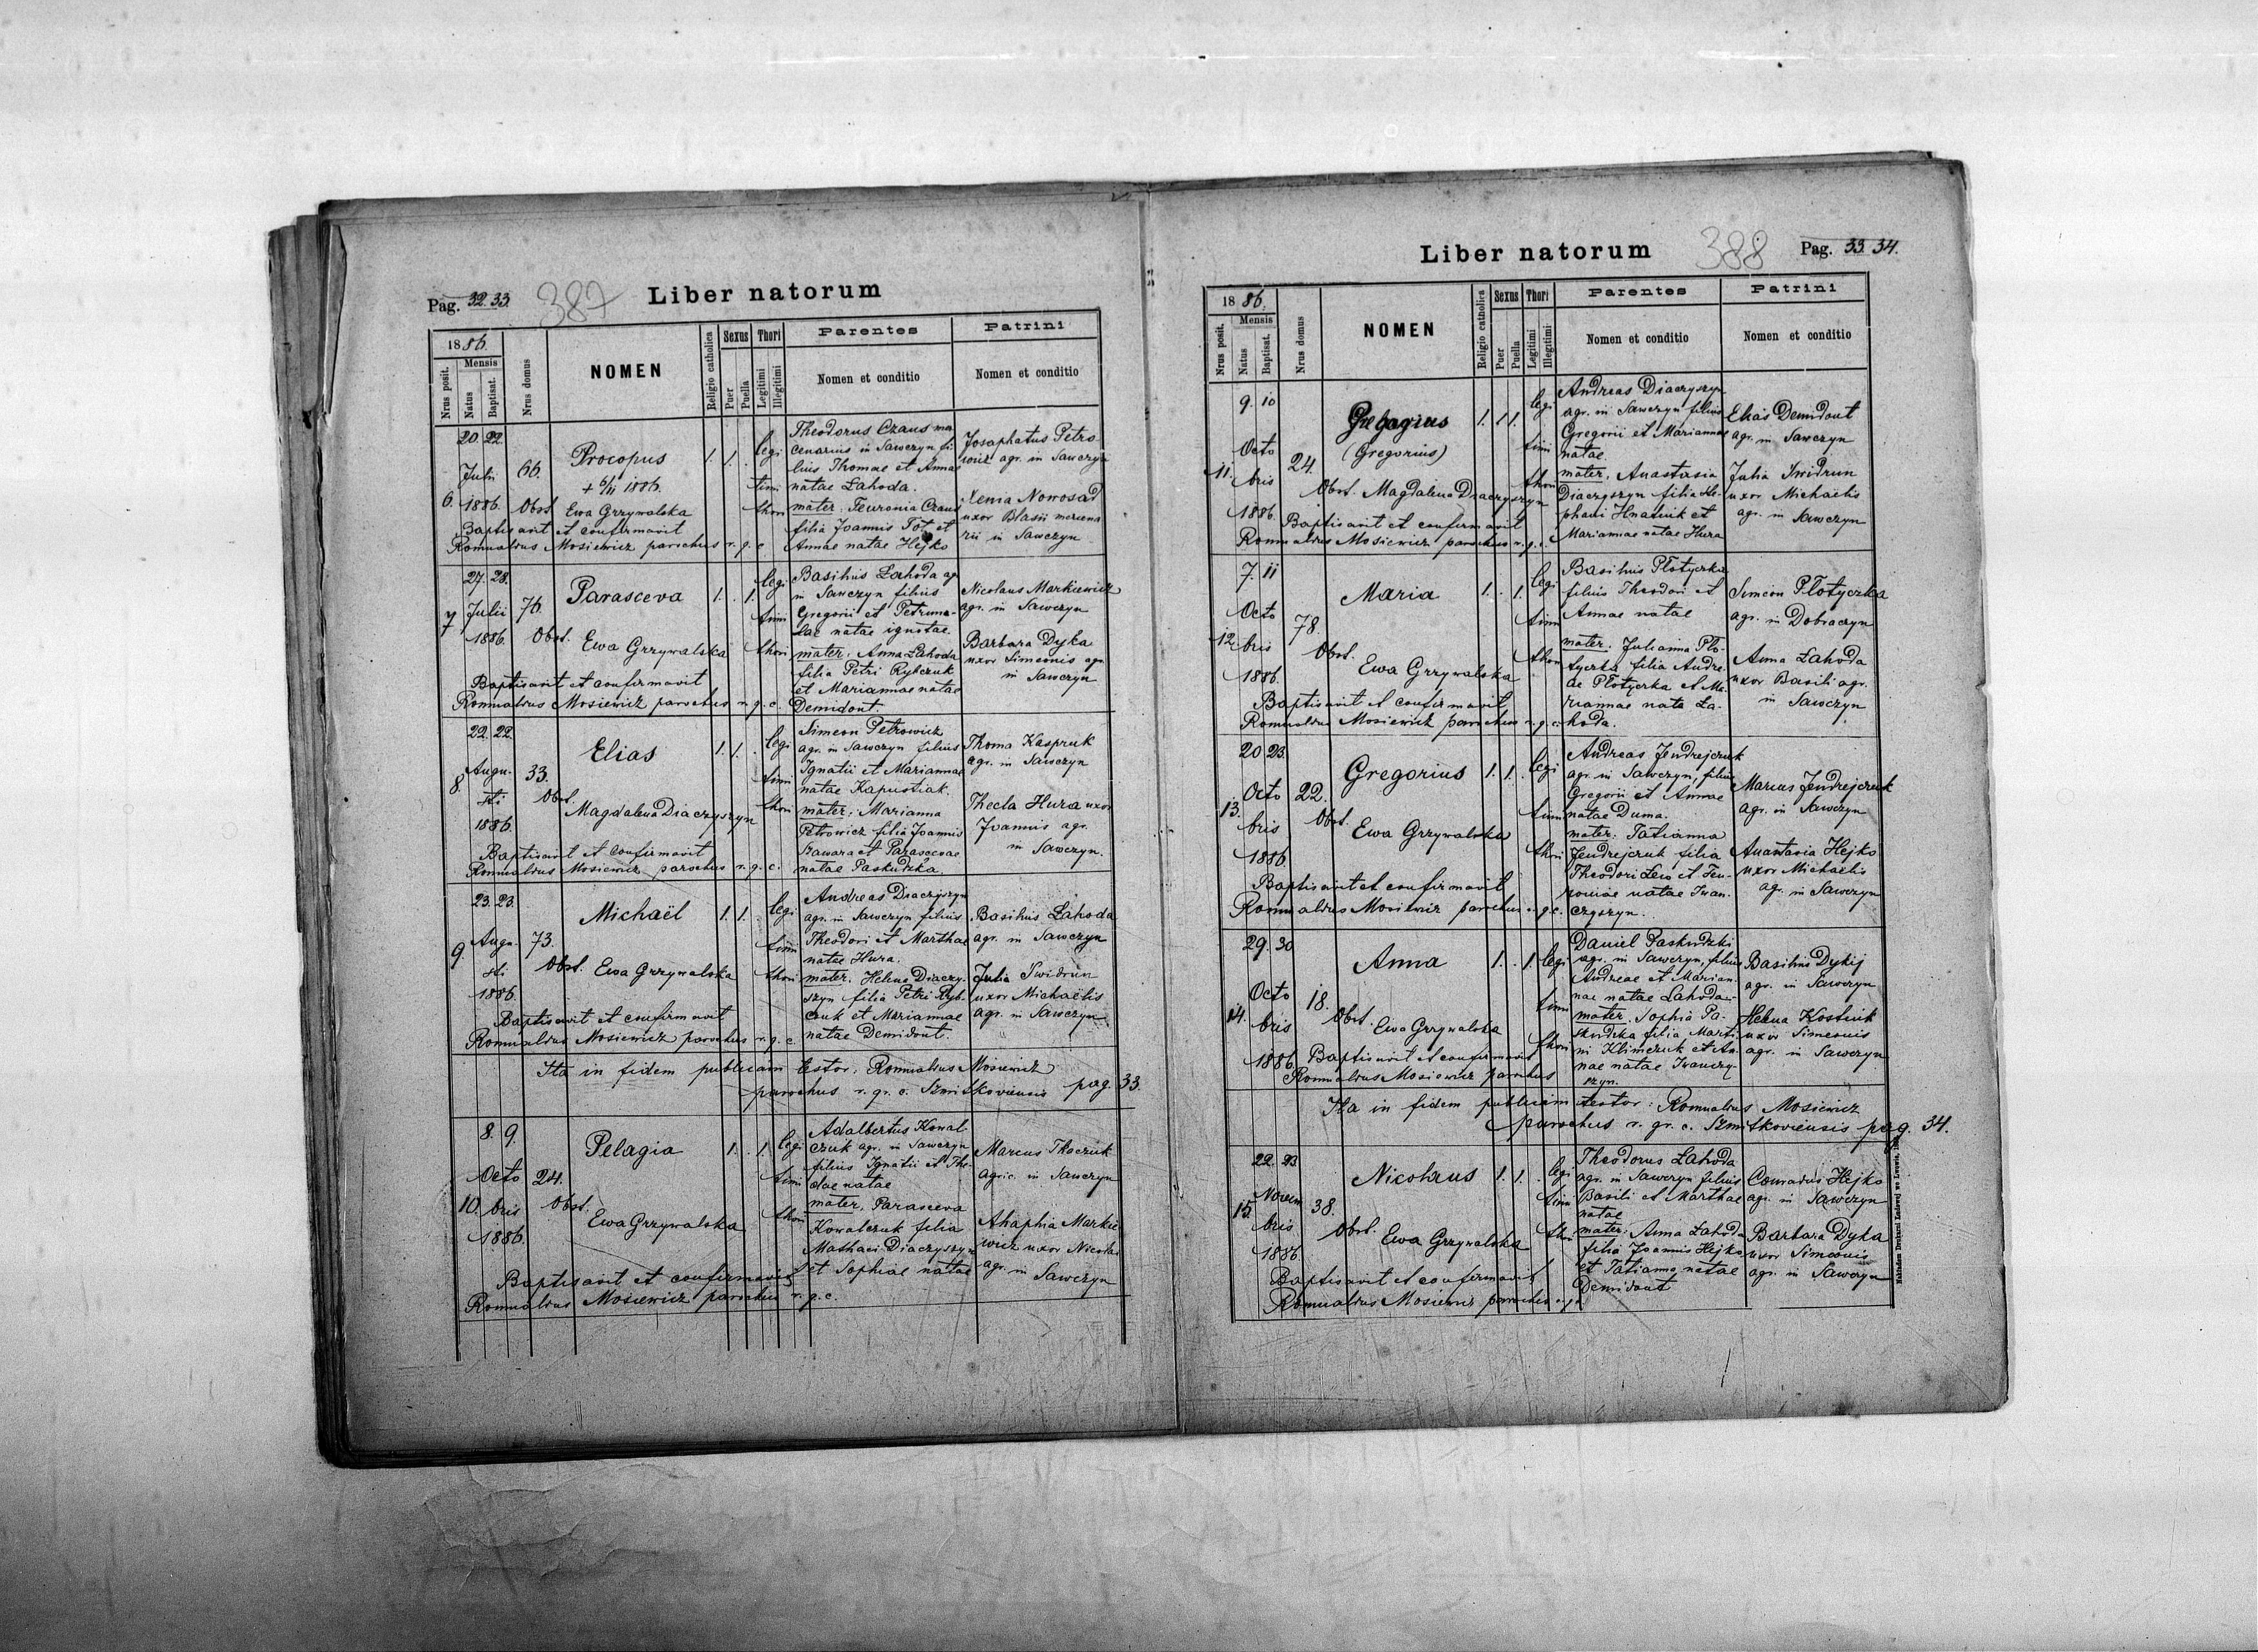 Pag. 32. 33.
387
Liber natorum
1886.
Nrus posit.
Mensis
Natus
Baptisat.
Nrus domus
NOMEN
Religio catholica
Sexus
Puer
Puella
Thori
Legitimi
Illegitimi
Parentes
Nomen et conditio
Patrini
Nomen et conditio
6.
20. 22.
Julii
1886.
66.
Procopus
+ 6/11 1886.
Obst. Ewa Grzywalska
Baptisavit et confirmavit
Romualdus Mosiewicz parochus r. g. c.
1. 1.
legi
timi
thori
Theodorus Czaus mer
cenarius in Sawczyn fi
lius Thomae et Annae
natae Lahoda.
mater: Feuronia Czaus
filia Joannis Tot et
Annae natae Hejko
Josaphatus Petro
wicz agr. in Sawczyn
Xenia Nowosad
uxor Blasii mercena
rii in Sawczyn
7.
27. 28.
Julii
1886.
76.
Parasceva
Obst. Ewa Grzywalska
Baptisavit et confirmavit
Romualdus Mosiewicz parochus r. g. c.
1. . 1.
legi
timi
thori
Basilius Lahoda agr
in Sawczyn filius
Gregorii et Petrune-
lae natae ignotae
mater: Anna Lahoda
filia Petri Rybczuk
et Mariannae natae
Demidont.
Nicolaus Markiewicz
agr. in Sawczyn
Barbara Dyka
uxor Simeonis agr.
in Sawczyn
8.
22. 22.
Augu-
sti
1886.
33.
Elias
Obst.
Magdalena Diaczyszyn
Baptisavit et confirmavit
Romualdus Mosiewicz parochus r. g. c.
1. 1.
legi
timi
thori
Simeon Petrowicz
agr. in Sawczyn filius
Ignatii et Mariannae
natae Kapustiak.
mater: Marianna
Petrowicz filia Joannis
Bawara et Parascevae
natae Paskudzka
Thoma Kaspruk
agr. in Sawczyn
Thecla Hura uxor
Joannis agr.
in Sawczyn.
9.
23. 23.
Augu-
sti
1886.
73.
Michaël
Obst. Ewa Grzywalska
Baptisavit et confirmavit
Romualdus Mosiewicz parochus r. g. c.
1. 1.
legi
timi
thori
Andreas Diaczyszyn
agr. in Sawczyn filius
Theodori et Marthae
natae Hura.
mater: Helena Diaczy-
szyn filia Petri Ryb-
czuk et Mariannae
natae Demidont.
Basilius Lahoda
agr. in Sawczyn
Julia Swidrun
uxor Michaëlis
agr. in Sawczyn
Ita in fidem publicam testor: Romualdus Mosiewicz
parochus r. gr. c. Szmitkoviensis pag. 33.
10.
8. 9.
Octo
bris
1886.
24.
Pelagia
Obst.
Ewa Grzywalska
Baptisavit et confirmavit
Romualdus Mosiewicz parochus r. g. c.
1. . 1.
legi
timi
thori
Adalbertus Kowal-
czuk agr. in Sawczyn
filius Ignatii et The-
clae natae
mater: Parasceva
Kowalczuk filia
Mathaei Diaczyszyn
et Sophiae natae
Marcus Tkaczuk
agric. in Sawczyn
Ahaphia Markie
wicz uxor Nicolai
agr. in Sawczyn
Liber natorum
388
Pag. 33. 34.
1886.
Nrus posit.
Mensis
Natus
Baptisat.
Nrus domus
NOMEN
Religio catholica
Sexus
Puer
Puella
Thori
Legitimi
Illegitimi
Parentes
Nomen et conditio
Patrini
Nomen et conditio
11.
9. 10
Octo
bris
1886.
24.
(Gregorius)
Obst. Magdalena Diaczyszyn
Baptisavit et confirmavit
Romualdus Mosiewicz parochus r. g. c.
legi
timi
thori
Andreas Diaczyszyn
agr. in Sawczyn filius
Gregorii et Mariannae
natae
mater: Anastasia
Diaczyszyn filia Ste-
phani Hnatiuk et
Mariannae natae Hura
Elias Demidont
agr. in Sawczyn
Julia Swidrun
uxor Michaëlis
agr. in Sawczyn
12.
7. 11
Octo
bris
1886.
78.
Maria
Obst.
Ewa Grzywalska
Baptisavit et confirmavit
Romualdus Mosiewicz parochus r. g. c.
1. . 1.
legi
timi
thori
Basilius Plotyczka
filius Theodori et
Annae natae
mater: Julianna Plo-
tyczka filia Andre-
ae Plotyczka et Ma-
riannae nata La-
hoda.
Simeon Plotyczka
agr. in Dobraczyn
Anna Lahoda
uxor Basili agr.
in Sawczyn
13.
20 23.
Octo
bris
1886.
22.
Gregorius
Obst.
Ewa Grzywalska
Baptisavit et confirmavit
Romualdus Mosiewicz parochus r. g. c.
1. 1.
legi
timi
thori
Andreas Jendrejczuk
agr. in Sawczyn, filius
Gregorii et Annae
natae Duma.
mater: Tatianna
Jendrejczuk filia
Theodori Leio et Feu-
roniae natae Iwan-
czyszyn.
Marcus Jendrejczuk
agr. in Sawczyn
Anastasia Hejko
uxor Michaelis
ag. in Sawczyn
14.
29. 30
Octo
bris
1886.
18.
Anna
Obst.
Ewa Grzywalska
Baptisavit et confirmavit
Romualdus Mosiewicz parochus
1. . 1.
legi
timi
thori
Daniel Paskudzki
agr. in Sawczyn, filius
Andreae et Marian-
nae natae Lahoda.
mater: Sophia Pa-
skudzka filia Marti-
ni Klimczuk et An-
nae natae Iwanczy-
szyn.
Basilius Dykij
agr. in Sawczyn
Helena Kostiuk
uxor Simeonis
agr. in Sawczyn
Ita in fidem publicam testor: Romualdus Mosiewicz
parochus r. gr. c. Szmitkoviensis pag. 34.
15.
22. 23
Novem
bris
1886.
38.
Nicolaus
Obst. Ewa Grzywalska
Baptisavit et confirmavit
Romualdus Mosiewicz parochus r. g. c.
1. 1.
legi
timi
thori
Theodorus Lahoda
agr. in Sawczyn filius
Basili et Marthae
natae
mater: Anna Lahoda
filia Joannis Hejko
et Tatianna natae
Demidont
Conradus Hejko
agr. in Sawczyn
Barbara Dyka
uxor Simeonis
agr. in Sawczyn
Nakładem Drukarni Ludowej we Lwowie.